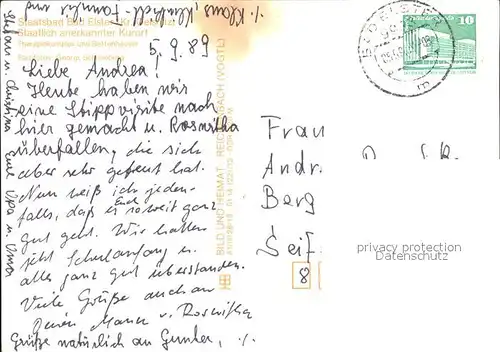 Staatsbad Bad Elster (Kr. Oelsnitz)
Staatlich anerkannter Kurort
5.9.89
Liebe Andrea!
Heute haben wir
eine Stippvisite nach
hier gemacht u. Roswitha
überfallen, die sich
aber sehr gefreut hat.
Nun weiß ich jeden-
falls, daß es Euch soweit ganz
gut geht. Wir hatten
jetzt Schulanfang u.
alles ganz gut überstanden.
Viele Grüße auch an
Deinen Mann v. Roswitha
Grüße natürlich an Gunter, ·/.
·/. Klaus,
Stefan u. Christina Eure Opa u. Oma
BILD UND HEIMAT REICHENBACH (VOGTL)
BAD ELSTER
DDR
10
Frau
Andr
Berg
Seif
8
privacy protection
Datenschutz